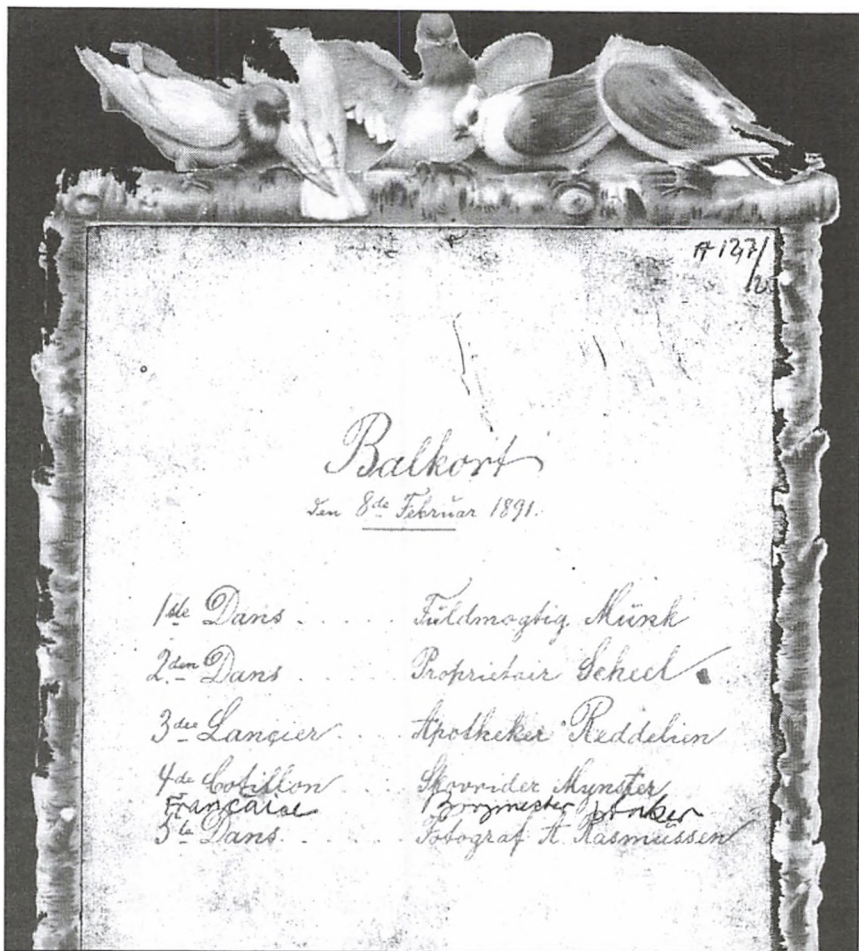 A 127/2
Balkort
den 8de Februar 1891.
1ste Dans ..... Fuldmægtig Münk
2den Dans ..... Proprietair Scheel
3die Lancier .... Apotheker Reddelien
4de Cotillon Skovrider Mynster
Française Borgmester
5te Dans ...... Fotograf A. Rasmussen